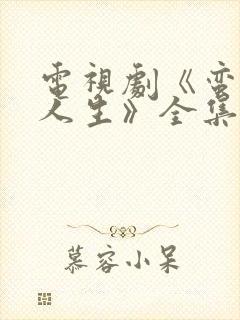 電視劇《蛮
人生》全集
慕容小呆